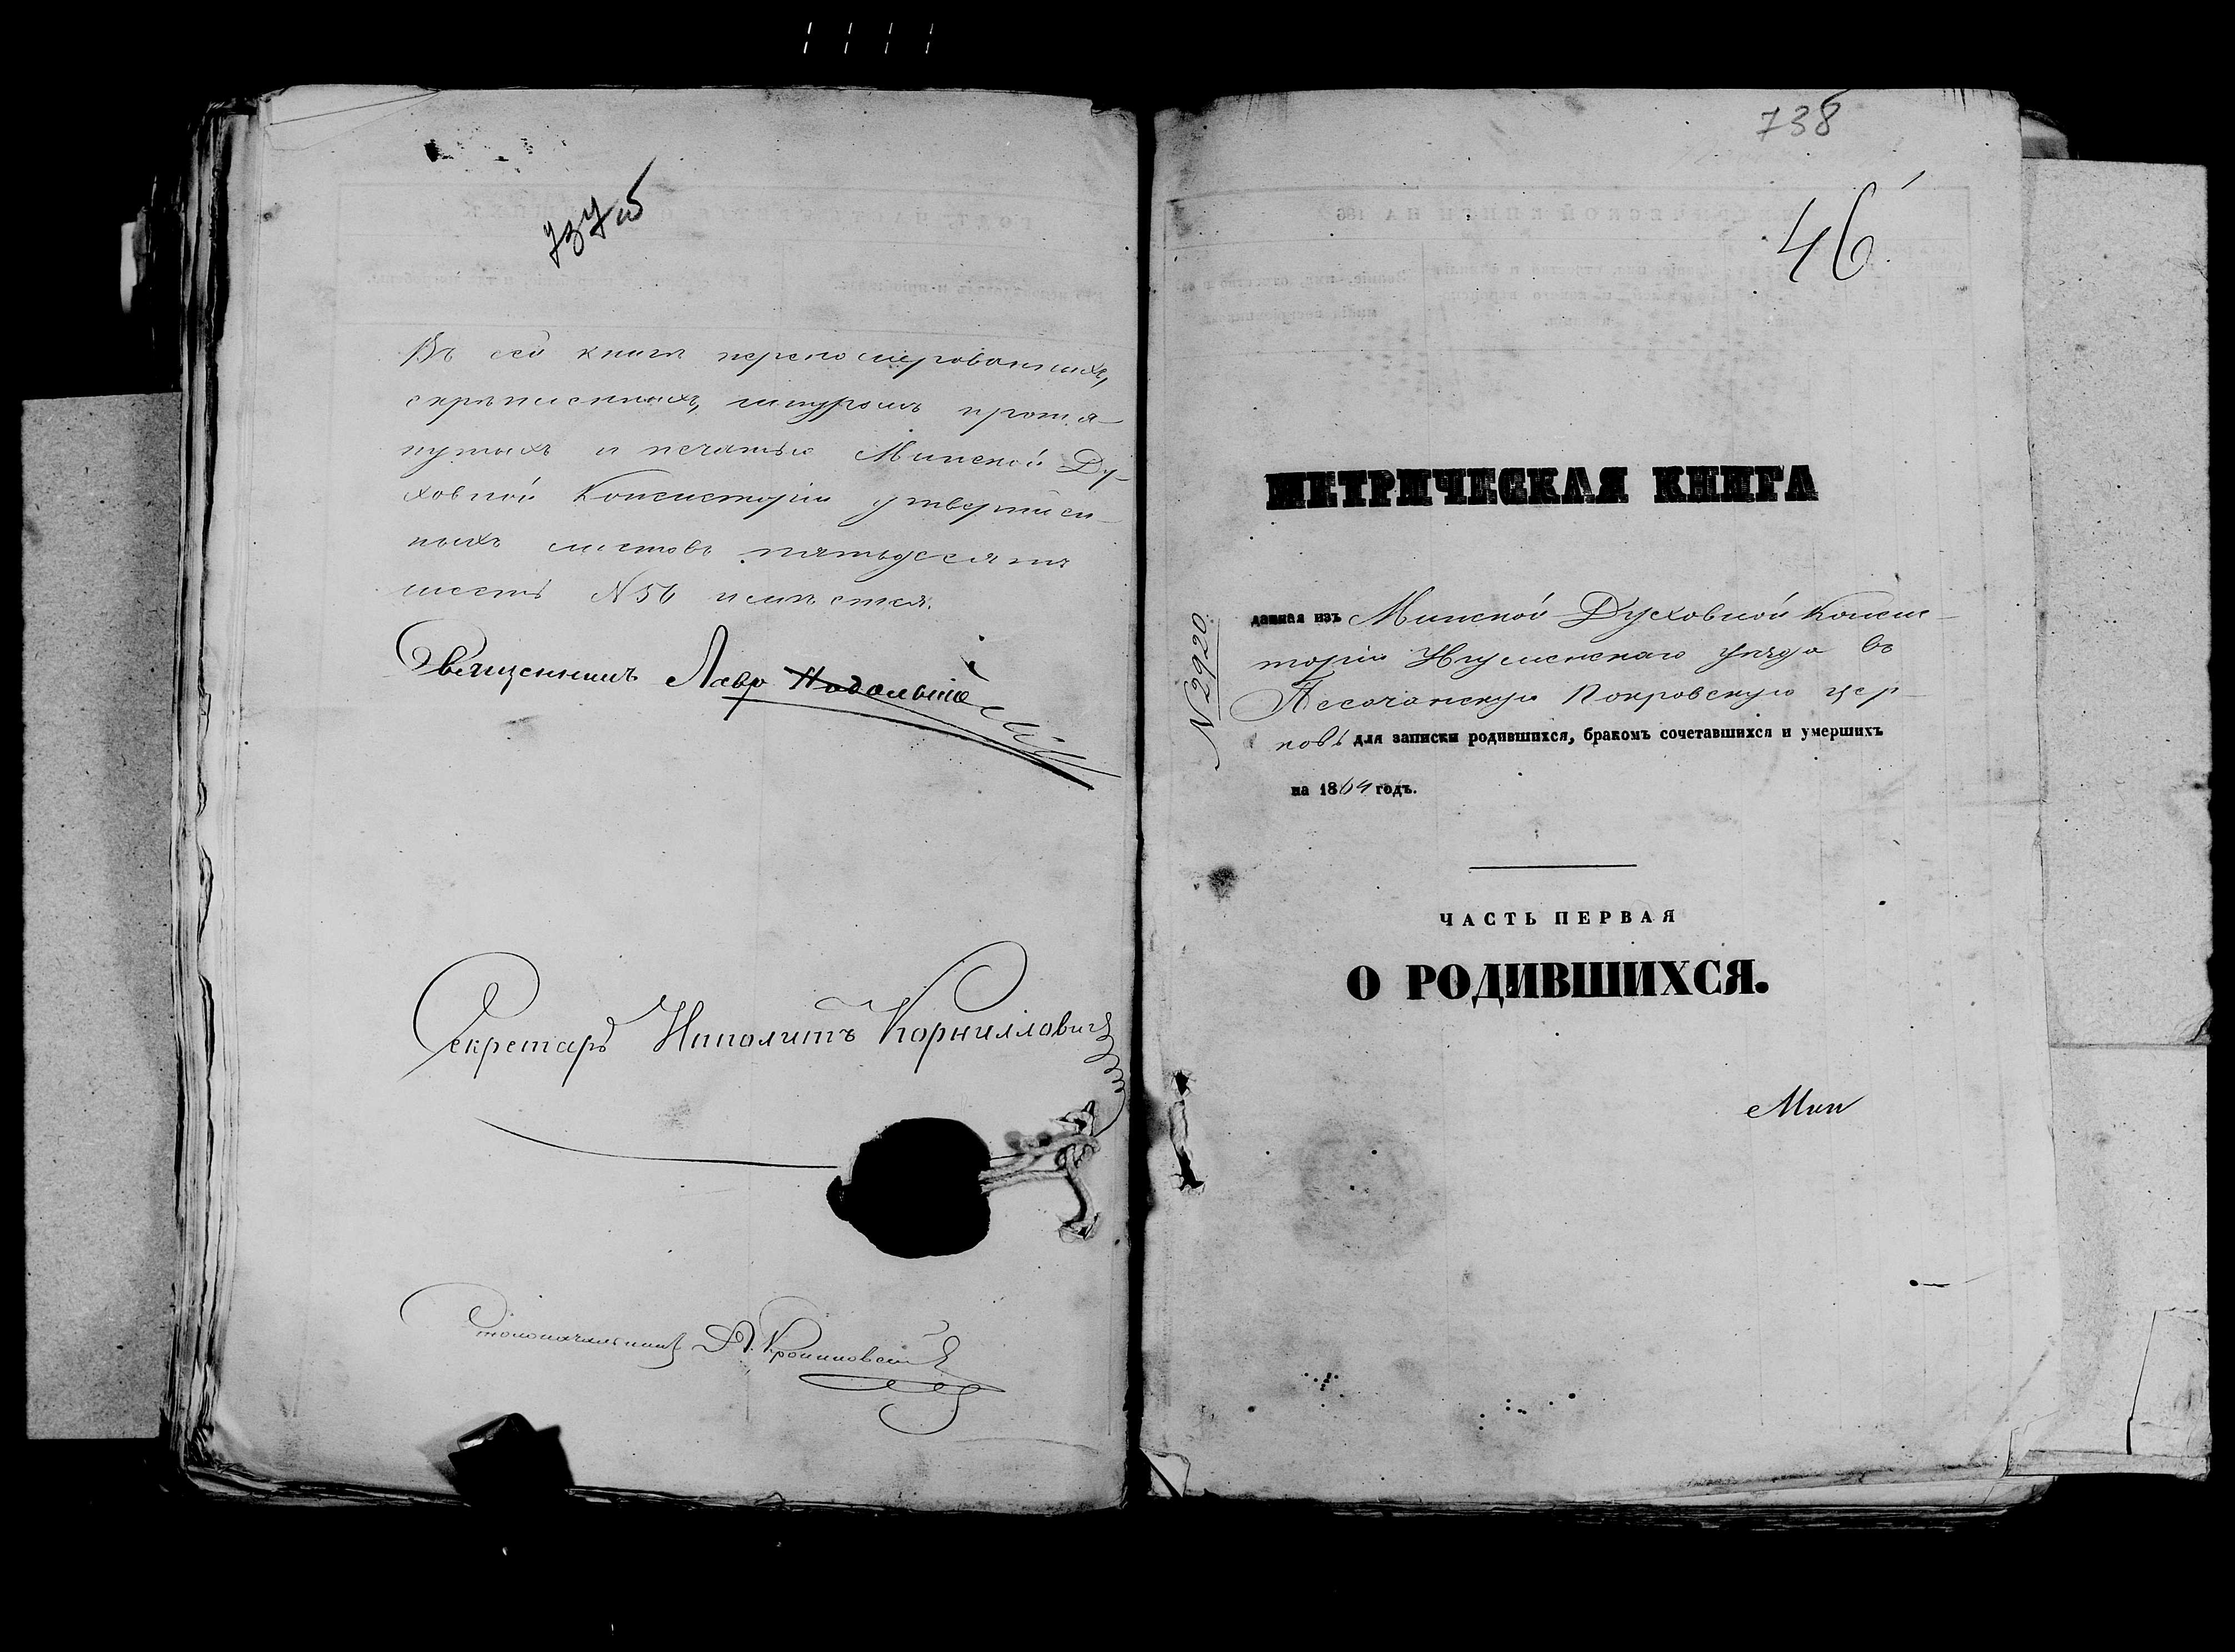 737 об
Въ сей книгѣ перенумерованныхъ,
скрѣпленныхъ, шнуромъ протя-
нутыхъ и печатью Минской Ду-
ховной Консисторіи утвержден-
ныхъ листовъ пятьдесятъ
шесть N 56 имѣется.
Священникъ Лавр
Секретарь Ипполитъ Корниловичъ
Столоначальникъ
738
46
МЕТРИЧЕСКАЯ КНИГА
N 2920
данная изъ Минской Духовной Консис-
торіи Игуменскаго уѣзда въ
Песочанскую Покровскую цер-
ковь для записки родившихся, бракомъ сочетавшихся и умершихъ
на 1864 годъ.
ЧАСТЬ ПЕРВАЯ
О РОДИВШИХСЯ.
Мин